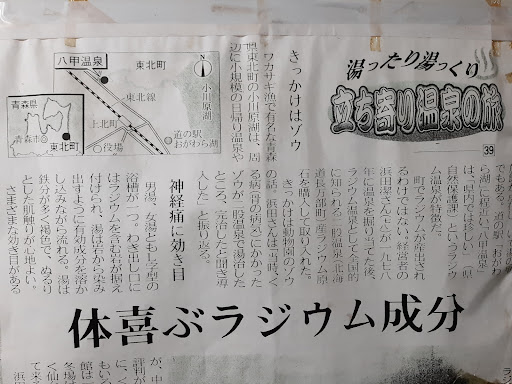 湯ったり湯っくり
立ち寄り温泉の旅
39
八甲温泉
東北町
小川原湖
東北線
上北町
役場
道の駅
おがわら湖
青森県
青森市
東北町
きっかけはゾウ
ワカサギ漁で有名な青森
県東北町の小川原湖は、周
辺に小規模の日帰り温泉や
でもある。道の駅「おがわ
ら湖」に程近い「八甲温泉」
は、「県内では珍しい」（県
自然保護課）というラジウ
ム温泉が特徴だ。
町でラジウムが産出され
るわけではない。経営者の
浜田 さん が一九七八
年に温泉を掘り当てた後、
ラジウム温泉として全国的
に知られる二股温泉（北海
道長万部町）産ラジウム原
石を購入して取り入れた。
きっかけは動物園のゾウ
の話。浜田さんは「当時、く
る病（骨の病気）にかかった
ゾウが二股温泉で湯治した
ところ、完治したと聞き導
入した」と振り返る。
神経痛に効き目
男湯、女湯ともL字型の
浴槽が一つ。わき出し口に
はラジウムを含む岩が据え
付けられ、湯は岩から染み
出すように有効成分を溶か
し込みながら流れる。湯は
鉄分が多く褐色で、ぬるり
とした肌触りが心地よい。
さまざまな効き目がある
体喜ぶラジウム成分